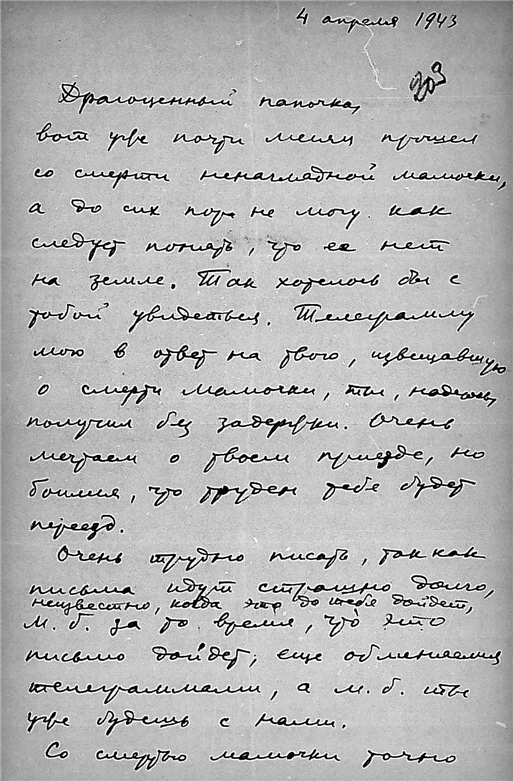 4 апреля 1943
303
Драгоценный папочка,
вот уже почти месяц прошел
со смерти ненаглядной мамочки,
а до сих пор не могу как
следует понять, что ее нет
на земле. Так хотелось бы с
тобой увидеться. Телеграмму
мою в ответ на твою, извещавшую
о смерти мамочки, ты, надеюсь,
получил без задержки. Очень
мечтаем о твоем приезде, но
боимся, что труден тебе будет
переезд.
Очень трудно писать, так как
письма идут страшно долго,
неизвестно, когда это до тебя дойдет,
М. б. за то время, что это
письмо дойдет, еще обменяемся
телеграммами, а м. б. ты
уже будешь с нами.
Со смертью мамочки точно